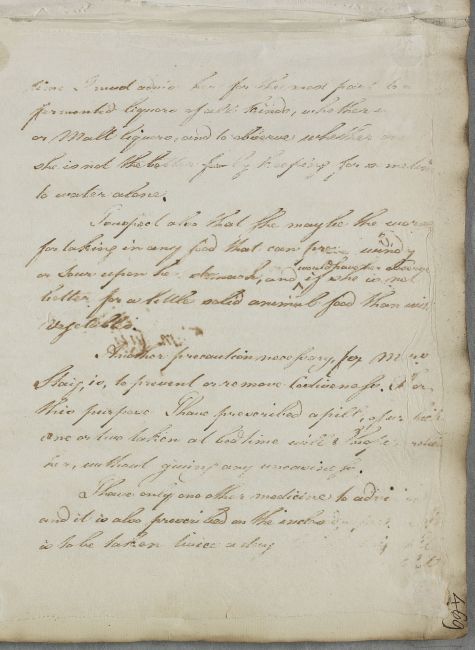 time I must advise her for the most part to
fermented liquors of all kinds, whether
or Malt liquors, and to observe whether
she is not the better for by keeping for a
to water alone.
I suspect also that she may be the worse
for taking in any food that can windy
or sour upon her stomach, and if she is not
would have her observe
better for a little solid animal food than
vegetables.
Another precaution necessary, for Mrs
is, to prevent or remove costiveness. For
this purpose I have prescribed a pill, of which
one or two taken at bedtime will
her, without giving any uneasiness.
I have only one other medicine to advise
and it is also prescribed on the inclosed
is to be taken twice a day
469